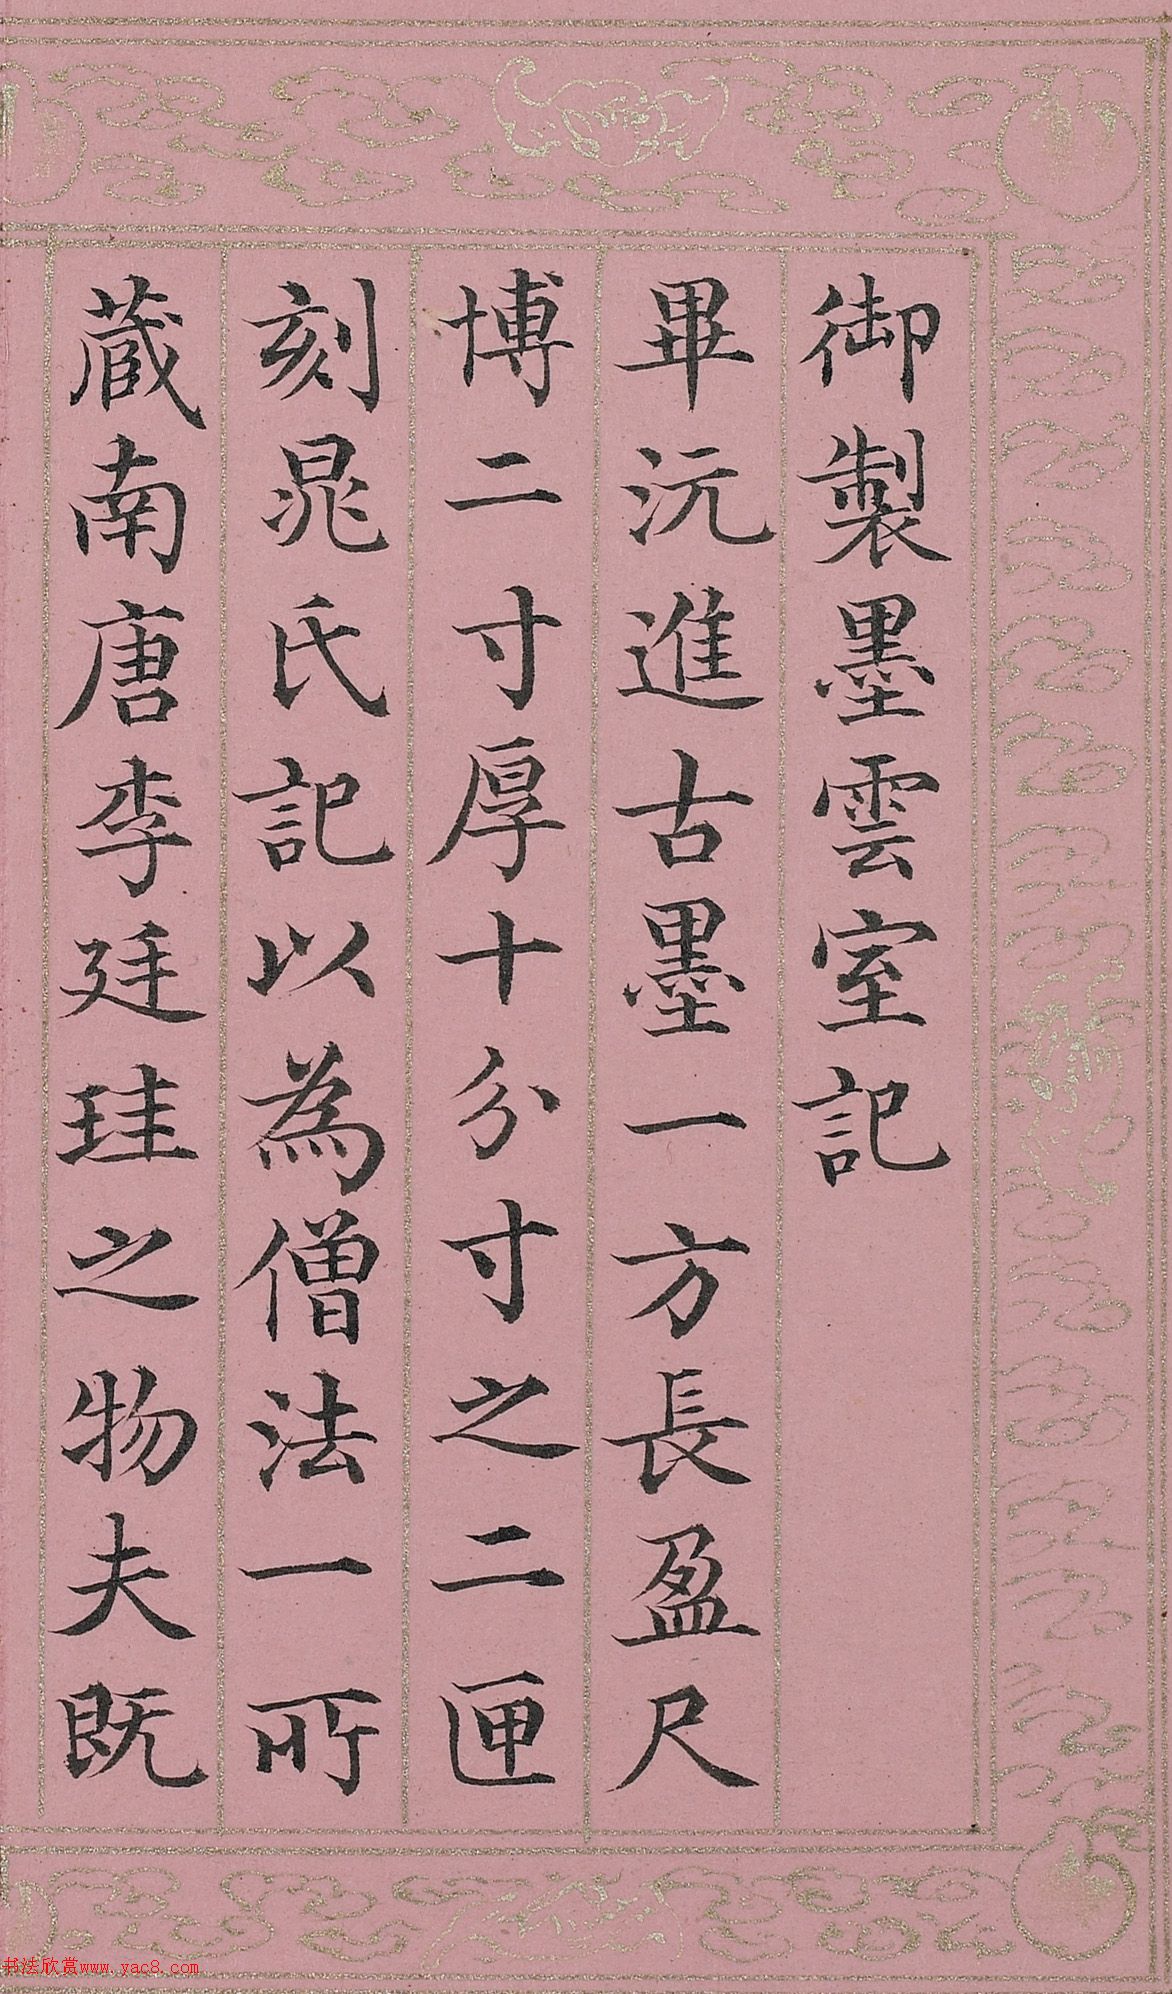 御製墨雲室記
畢沅進古墨一方長盈尺
博二寸厚十分寸之二匣
刻晁氏記以為僧法一所
藏南唐李廷珪之物夫既
书法欣赏www.yac8.com